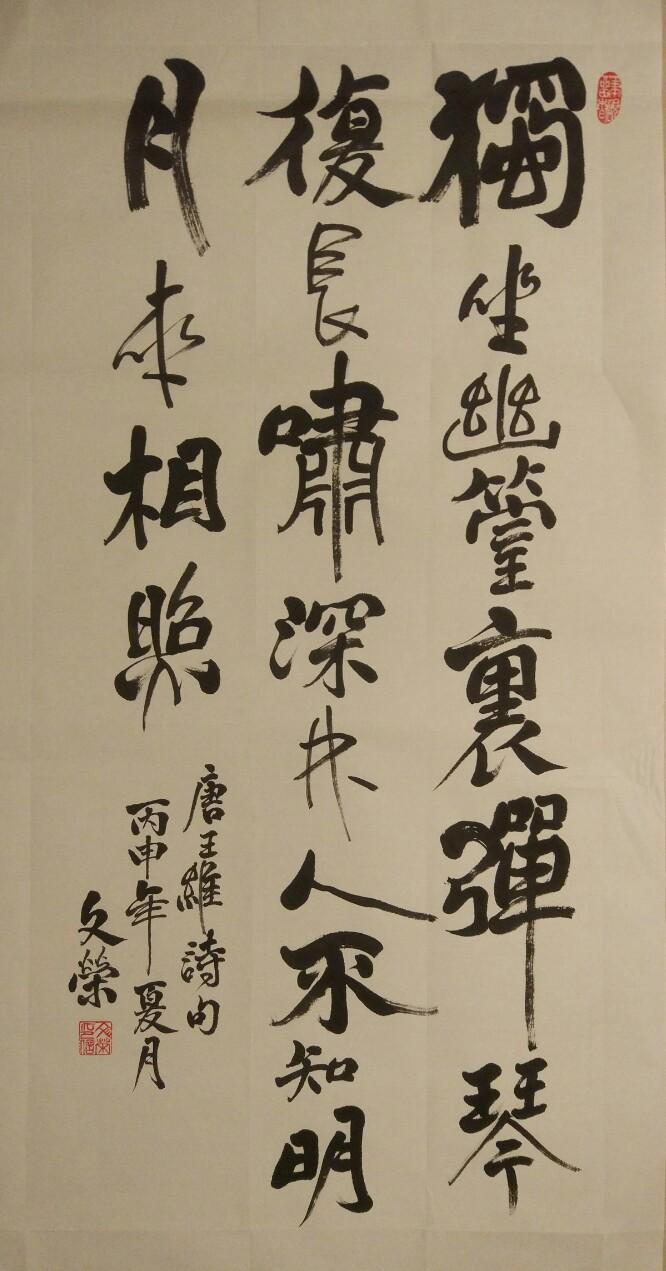 獨坐幽篁裏彈琴
復長嘯深林人不知明
月來相照
唐王維詩句
丙申年夏月
文榮